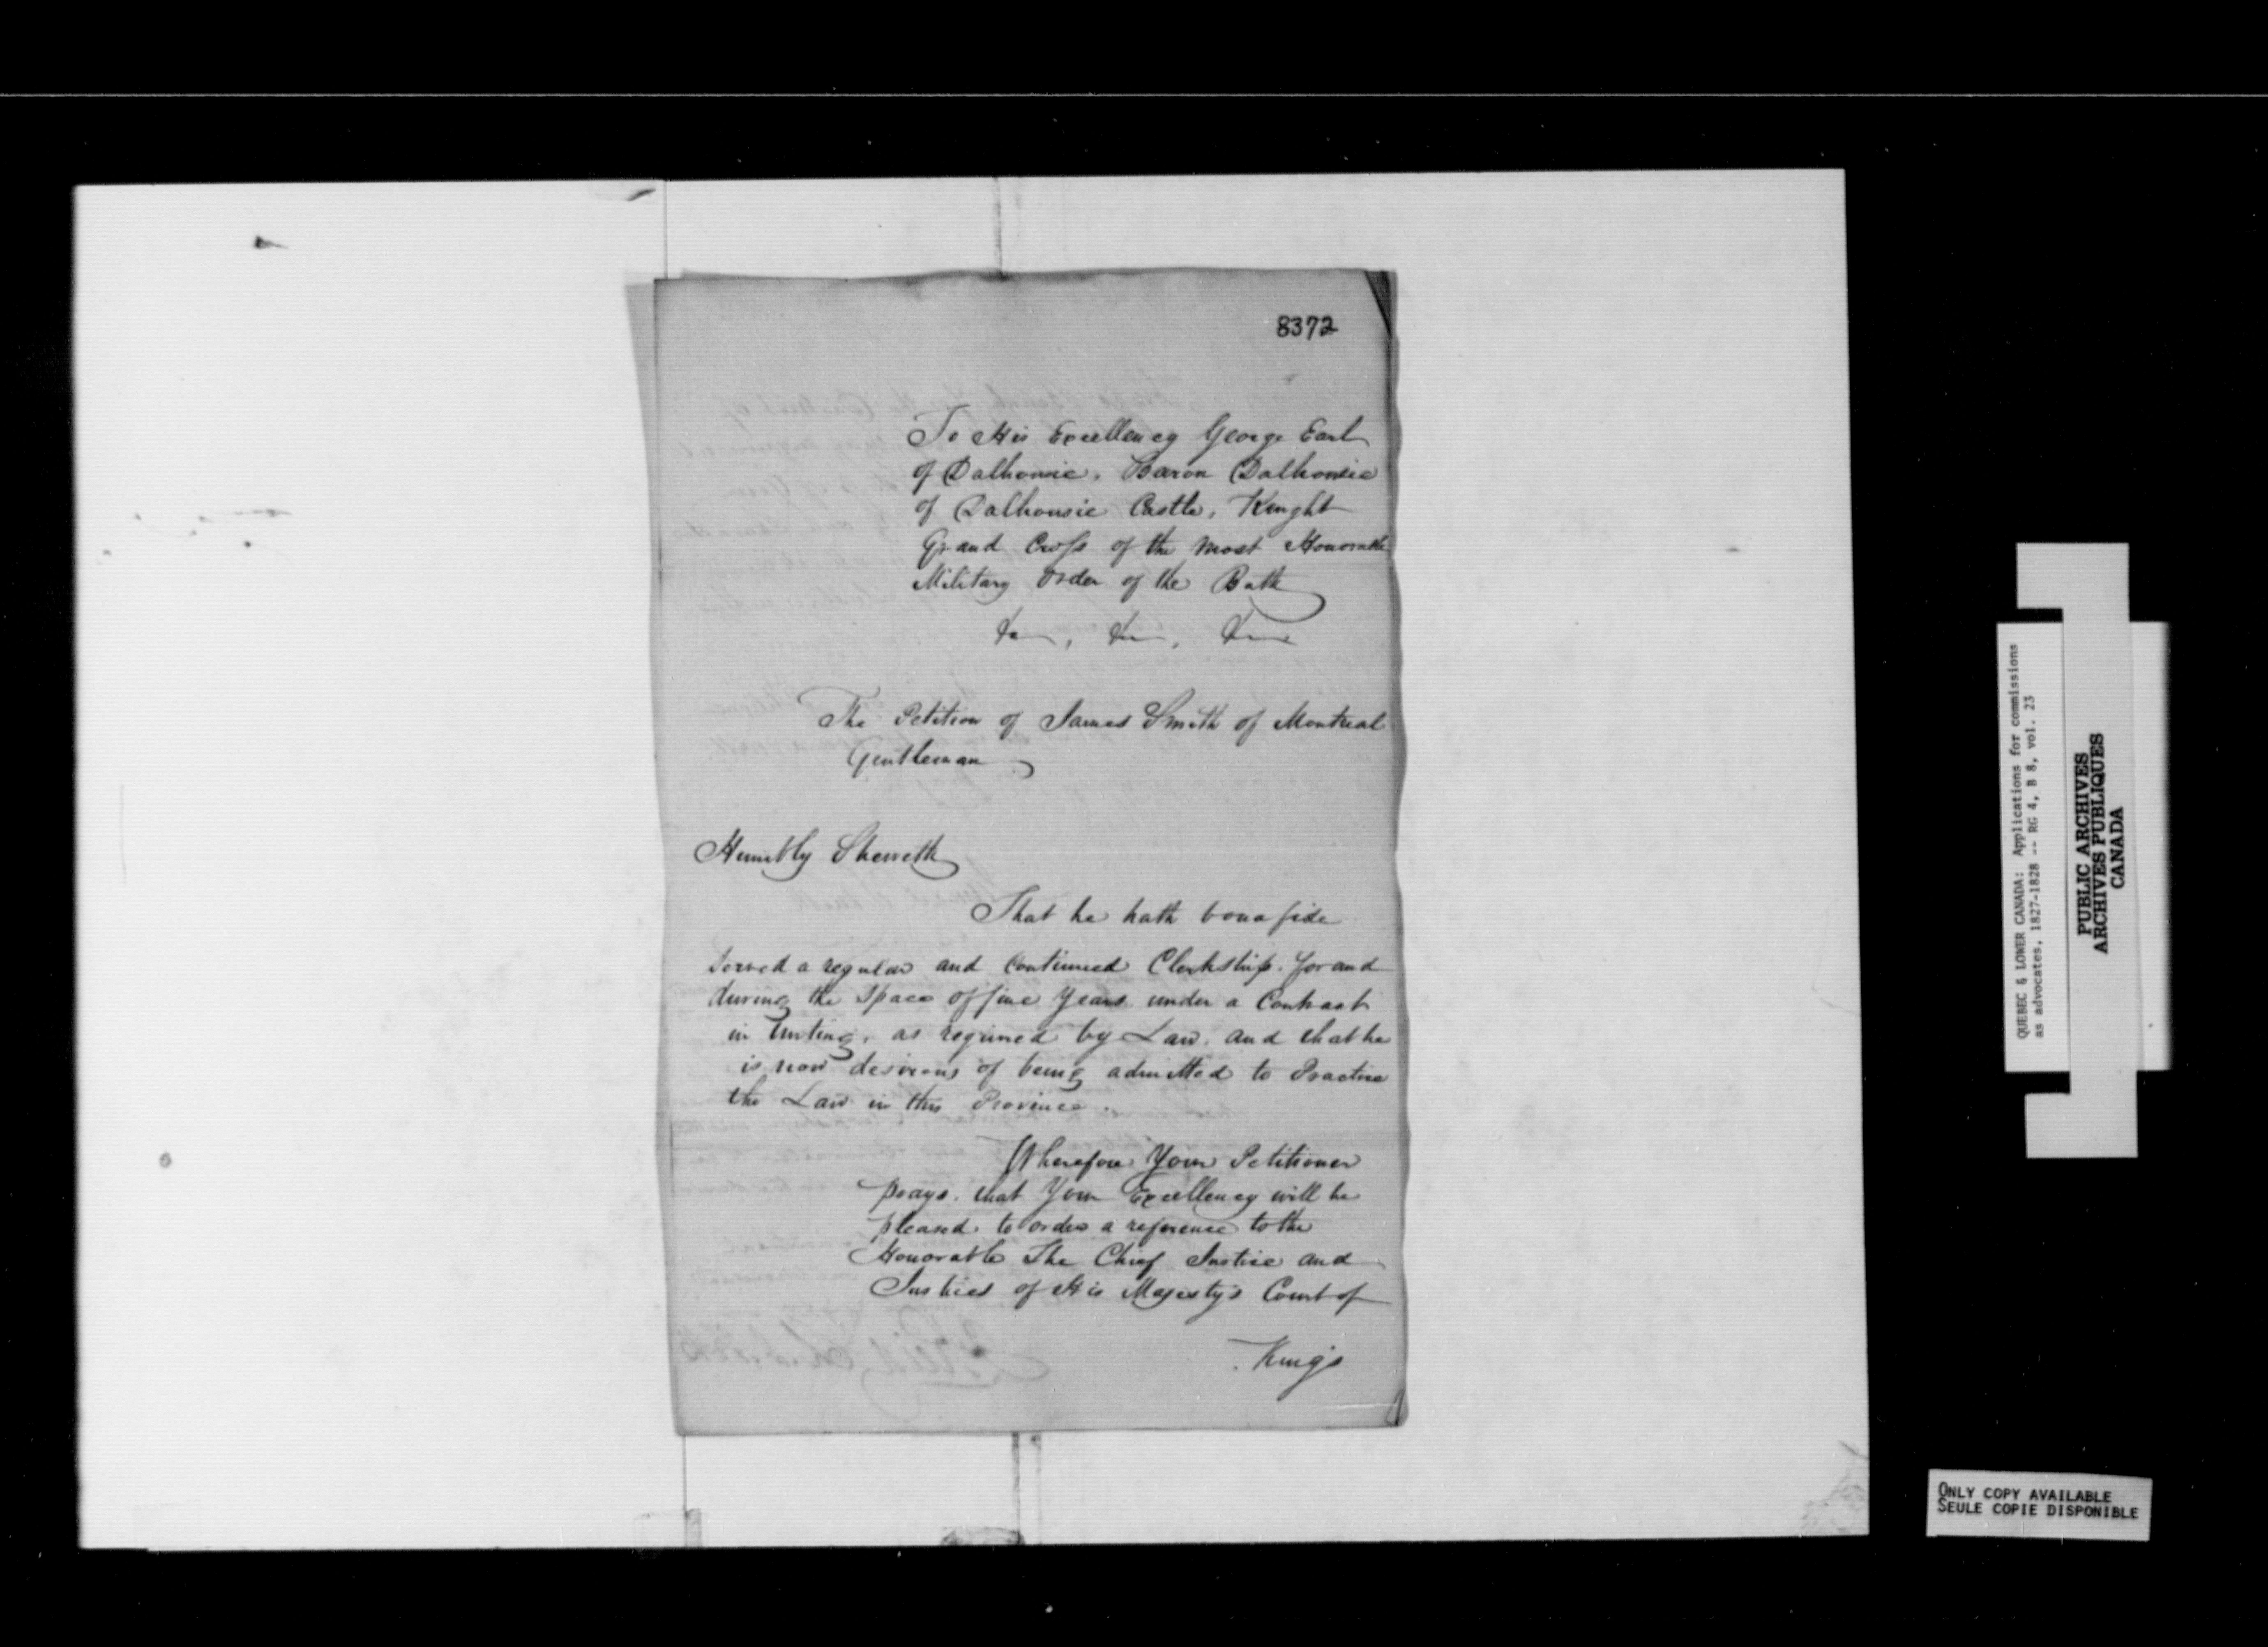 8372
To His Excellency George Earl
of Dalhousie, Baron Dalhousie
of Dalhousie Castle, Knight
Grand Cross of the Most Honorable
Military Order of the Bath
&c, &c, &c
The Petition of James Smith of Montreal
Gentleman
Humbly Sheweth
That he hath bona fide
Served a regular and Continued Clerkship, for and
during the Space of five Years under a Contract
in Writing, as required by Law, and that he
is now desirous of being admitted to Practice
the Law in this Province.
Wherefore Your Petitioner
prays, that Your Excellency will be
pleased to order a reference to the
Honorable The Chief Justice and
Justices of His Majesty's Court of
King's
QUEBEC & LOWER CANADA: Applications for commissions
as advocates, 1827-1828 -- RG 4, B 8, vol. 23
PUBLIC ARCHIVES
ARCHIVES PUBLIQUES
CANADA
ONLY COPY AVAILABLE
SEULE COPIE DISPONIBLE